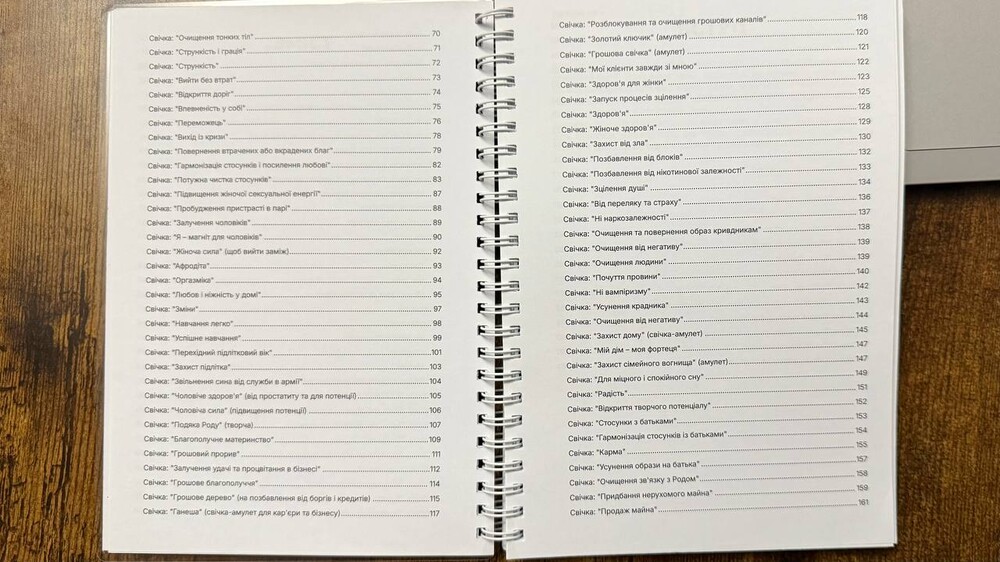 Свічка: "Очищення тонких тіл" 70
Свічка: "Стрункість і грація" 71
Свічка: "Стрункість" 72
Свічка: "Вийти без втрат" 73
Свічка: "Відкриття доріг" 74
Свічка: "Впевненість у собі" 75
Свічка: "Переможець" 76
Свічка: "Вихід із кризи" 78
Свічка: "Повернення втрачених або вкрадених благ" 79
Свічка: "Гармонізація стосунків і посилення любові" 82
Свічка: "Потужна чистка стосунків" 83
Свічка: "Підвищення жіночої сексуальної енергії" 87
Свічка: "Пробудження пристрасті в парі" 88
Свічка: "Залучення чоловіків" 89
Свічка: "Я – магніт для чоловіків" 90
Свічка: "Жіноча сила" (щоб вийти заміж) 92
Свічка: "Афродіта" 93
Свічка: "Оргазміка" 94
Свічка: "Любов і ніжність у домі" 95
Свічка: "Зміни" 97
Свічка: "Навчання легко" 98
Свічка: "Успішне навчання" 99
Свічка: "Перехідний підлітковий вік" 101
Свічка: "Захист підлітка" 103
Свічка: "Звільнення сина від служби в армії" 104
Свічка: "Чоловіче здоров'я" (від простатиту та для потенції) 105
Свічка: "Чоловіча сила" (підвищення потенції) 106
Свічка: "Подяка Роду" (творча) 107
Свічка: "Благополучне материнство" 109
Свічка: "Грошовий прорив" 111
Свічка: "Залучення удачі та процвітання в бізнесі" 112
Свічка: "Грошове благополуччя" 114
Свічка: "Грошове дерево" (на позбавлення від боргів і кредитів) 115
Свічка: "Ганеша" (свічка-амулет для кар'єри та бізнесу) 117
Свічка: "Розблокування та очищення грошових каналів" 118
Свічка: "Золотий ключик" (амулет) 120
Свічка: "Грошова свічка" (амулет) 121
Свічка: "Мої клієнти завжди зі мною" 122
Свічка: "Здоров'я для жінки" 123
Свічка: "Запуск процесів зцілення" 125
Свічка: "Здоров'я" 128
Свічка: "Жіноче здоров'я" 129
Свічка: "Захист від зла" 130
Свічка: "Позбавлення від блоків" 132
Свічка: "Позбавлення від нікотинової залежності" 133
Свічка: "Зцілення душі" 134
Свічка: "Від переляку та страху" 136
Свічка: "Ні наркозалежності" 137
Свічка: "Очищення та повернення образ кривдникам" 138
Свічка: "Очищення від негативу" 139
Свічка: "Очищення людини" 139
Свічка: "Почуття провини" 140
Свічка: "Ні вампіризму" 142
Свічка: "Усунення крадника" 143
Свічка: "Очищення від негативу" 144
Свічка: "Захист дому" (свічка-амулет) 145
Свічка: "Мій дім – моя фортеця" 147
Свічка: "Захист сімейного вогнища" (амулет) 147
Свічка: "Для міцного і спокійного сну" 149
Свічка: "Радість" 151
Свічка: "Відкриття творчого потенціалу" 152
Свічка: "Стосунки з батьками" 153
Свічка: "Гармонізація стосунків із батьками" 154
Свічка: "Карма" 155
Свічка: "Усунення образи на батька" 157
Свічка: "Очищення зв'язку з Родом" 158
Свічка: "Придбання нерухомого майна" 159
Свічка: "Продаж майна" 161